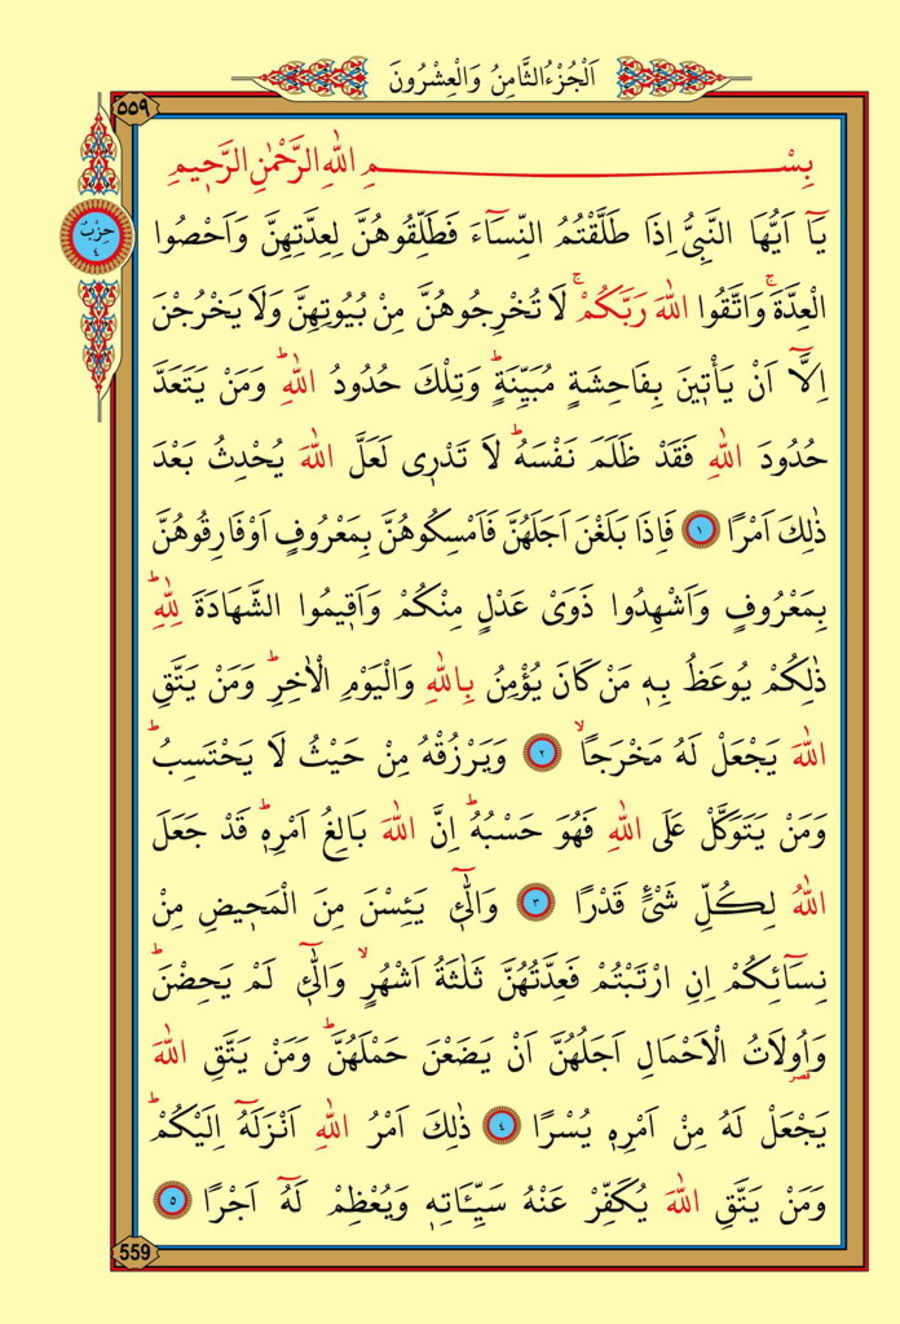 اَلْجُزْءُ الثَّامِنُ وَالْعِشْرُونَ
٥٥٩
حِزْبٌ
٤
بِسْـــــــمِ اللّٰهِ الرَّحْمٰنِ الرَّح۪يمِ
يَٓا اَيُّهَا النَّبِيُّ اِذَا طَلَّقْتُمُ النِّسَٓاءَ فَطَلِّقُوهُنَّ لِعِدَّتِهِنَّ وَاَحْصُوا
الْعِدَّةَۚ وَاتَّقُوا اللّٰهَ رَبَّكُمْۚ لَا تُخْرِجُوهُنَّ مِنْ بُيُوتِهِنَّ وَلَا يَخْرُجْنَ
اِلَّٓا اَنْ يَأْت۪ينَ بِفَاحِشَةٍ مُبَيِّنَةٍۜ وَتِلْكَ حُدُودُ اللّٰهِۜ وَمَنْ يَتَعَدَّ
حُدُودَ اللّٰهِ فَقَدْ ظَلَمَ نَفْسَهُۜ لَا تَدْر۪ي لَعَلَّ اللّٰهَ يُحْدِثُ بَعْدَ
ذٰلِكَ اَمْرًا ١ فَاِذَا بَلَغْنَ اَجَلَهُنَّ فَاَمْسِكُوهُنَّ بِمَعْرُوفٍ اَوْ فَارِقُوهُنَّ
بِمَعْرُوفٍ وَاَشْهِدُوا ذَوَيْ عَدْلٍ مِنْكُمْ وَاَق۪يمُوا الشَّهَادَةَ لِلّٰهِۜ
ذٰلِكُمْ يُوعَظُ بِه۪ مَنْ كَانَ يُؤْمِنُ بِاللّٰهِ وَالْيَوْمِ الْاٰخِرِۜ وَمَنْ يَتَّقِ
اللّٰهَ يَجْعَلْ لَهُ مَخْرَجًاۙ ٢ وَيَرْزُقْهُ مِنْ حَيْثُ لَا يَحْتَسِبُۜ
وَمَنْ يَتَوَكَّلْ عَلَى اللّٰهِ فَهُوَ حَسْبُهُۜ اِنَّ اللّٰهَ بَالِغُ اَمْرِه۪ۜ قَدْ جَعَلَ
اللّٰهُ لِكُلِّ شَيْءٍ قَدْرًا ٣ وَالّٰٓـ۪ٔي يَئِسْنَ مِنَ الْمَح۪يضِ مِنْ
نِسَٓائِكُمْ اِنِ ارْتَبْتُمْ فَعِدَّتُهُنَّ ثَلٰثَةُ اَشْهُرٍۙ وَالّٰٓـ۪ٔي لَمْ يَحِضْنَۜ
وَاُو۬لَاتُ الْاَحْمَالِ اَجَلُهُنَّ اَنْ يَضَعْنَ حَمْلَهُنَّۜ وَمَنْ يَتَّقِ اللّٰهَ
قصر
يَجْعَلْ لَهُ مِنْ اَمْرِه۪ يُسْرًا ٤ ذٰلِكَ اَمْرُ اللّٰهِ اَنْزَلَهُٓ اِلَيْكُمْۜ
وَمَنْ يَتَّقِ اللّٰهَ يُكَفِّرْ عَنْهُ سَيِّـَٔاتِه۪ وَيُعْظِمْ لَهُٓ اَجْرًا ٥
559